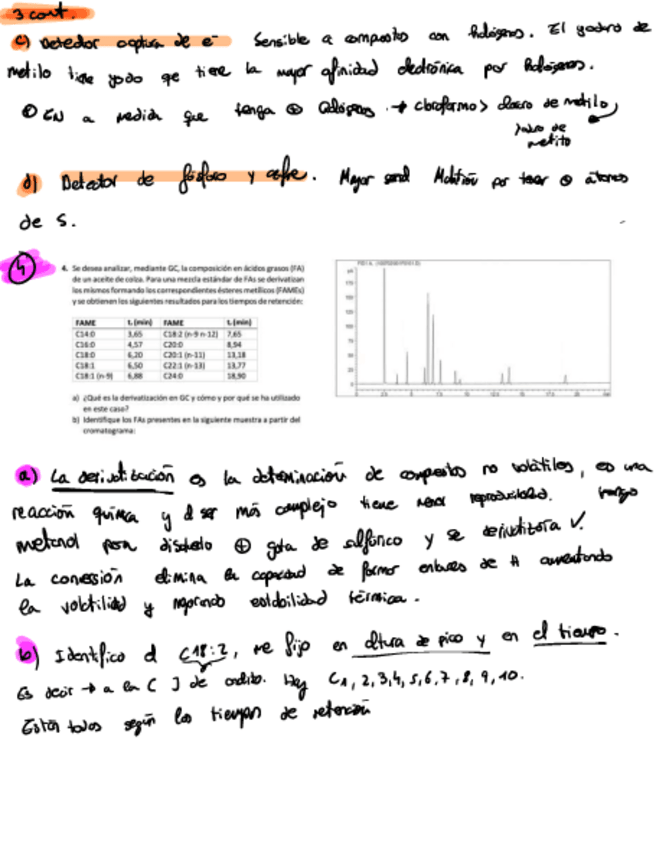 3 cont.
c) Detector captura de e⁻ Sensible a compuestos con halógenos. El yoduro de
metilo tiene yodo que tiene la mayor afinidad electrónica por halógenos.
① En a medida que tenga ⊕ halógenos → cloroformo > cloro de metilo
yoduro de
metilo
d) Detector de fósforo y azufre. Mayor señal por tener ⊕ átomos
de S.
4
4. Se desea analizar, mediante GC, la composición en ácidos grasos (FA)
de un aceite de colza. Para una mezcla estándar de FAs se derivatizan
los mismos formando los correspondientes ésteres metílicos (FAMEs)
y se obtienen los siguientes resultados para los tiempos de retención:
FAME tᵣ (min) FAME tᵣ (min)
C14:0 3,65 C18:2 (n-9 n-12) 7,65
C16:0 4,57 C20:0 8,94
C18:0 6,20 C20:1 (n-11) 13,18
C18:1 6,50 C22:1 (n-13) 13,77
C18:1 (n-9) 6,88 C24:0 18,90
a) ¿Qué es la derivatización en GC y cómo y por qué se ha utilizado
en este caso?
b) Identifique los FAs presentes en la siguiente muestra a partir del
cromatograma:
a) La derivatización es la determinación de compuestos no volátiles, es una
reacción química y al ser más complejo tiene menor reproducibilidad.
metanol para disolverlo ⊕ gota de sulfúrico y se derivatizara ✓.
La conversión elimina la capacidad de formar enlaces de H aumentando
la volatilidad y mejorando estabilidad térmica.
b) Identifico el C18:2, me fijo en altura de pico y en el tiempo.
Es decir → a la [ ] de ácido. Hay C1, 2, 3, 4, 5, 6, 7, 8, 9, 10.
Están todos según los tiempos de retención